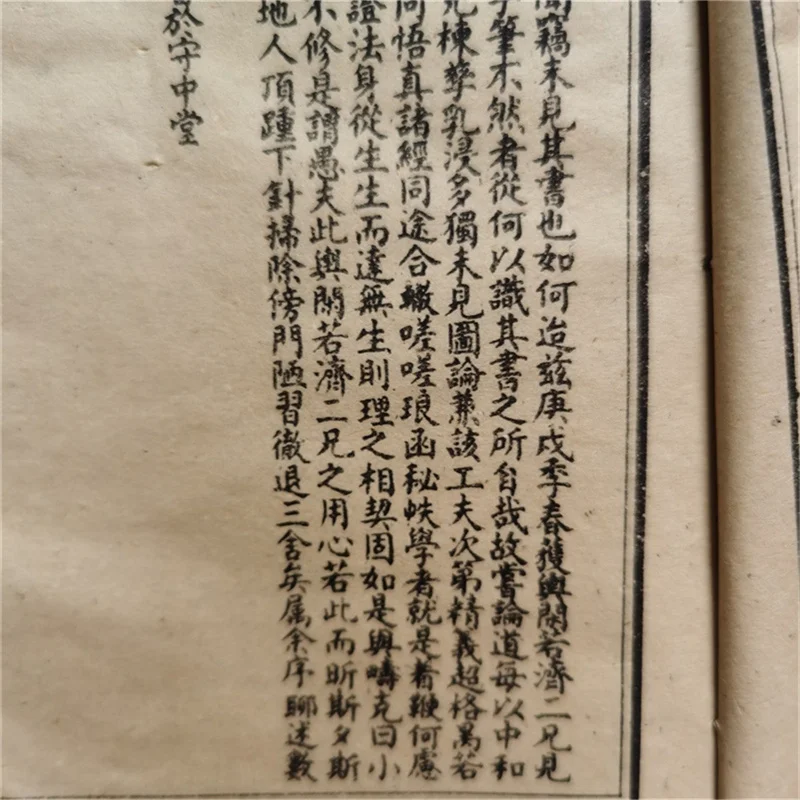 闻竊未見其書也如何迨茲庚戌季春獲與閑若濟二兄見
筆不然者從何以識其書之所自哉故嘗論道每以中和
棟孽乳浸多獨未見圖論兼該工夫次第精義超格萬若
同悟真諸經同途合轍嗟嗟琅函秘帙學者就是著鞭何慮
證法身從生生而達無生則理之相契固如是與疇克曰小
不修是謂愚夫此與閑若濟二兄之用心若此而昕斯夕斯
地人頂踵下針掃除傍門陋習徹退三舍矣属余序聊述數
於守中堂